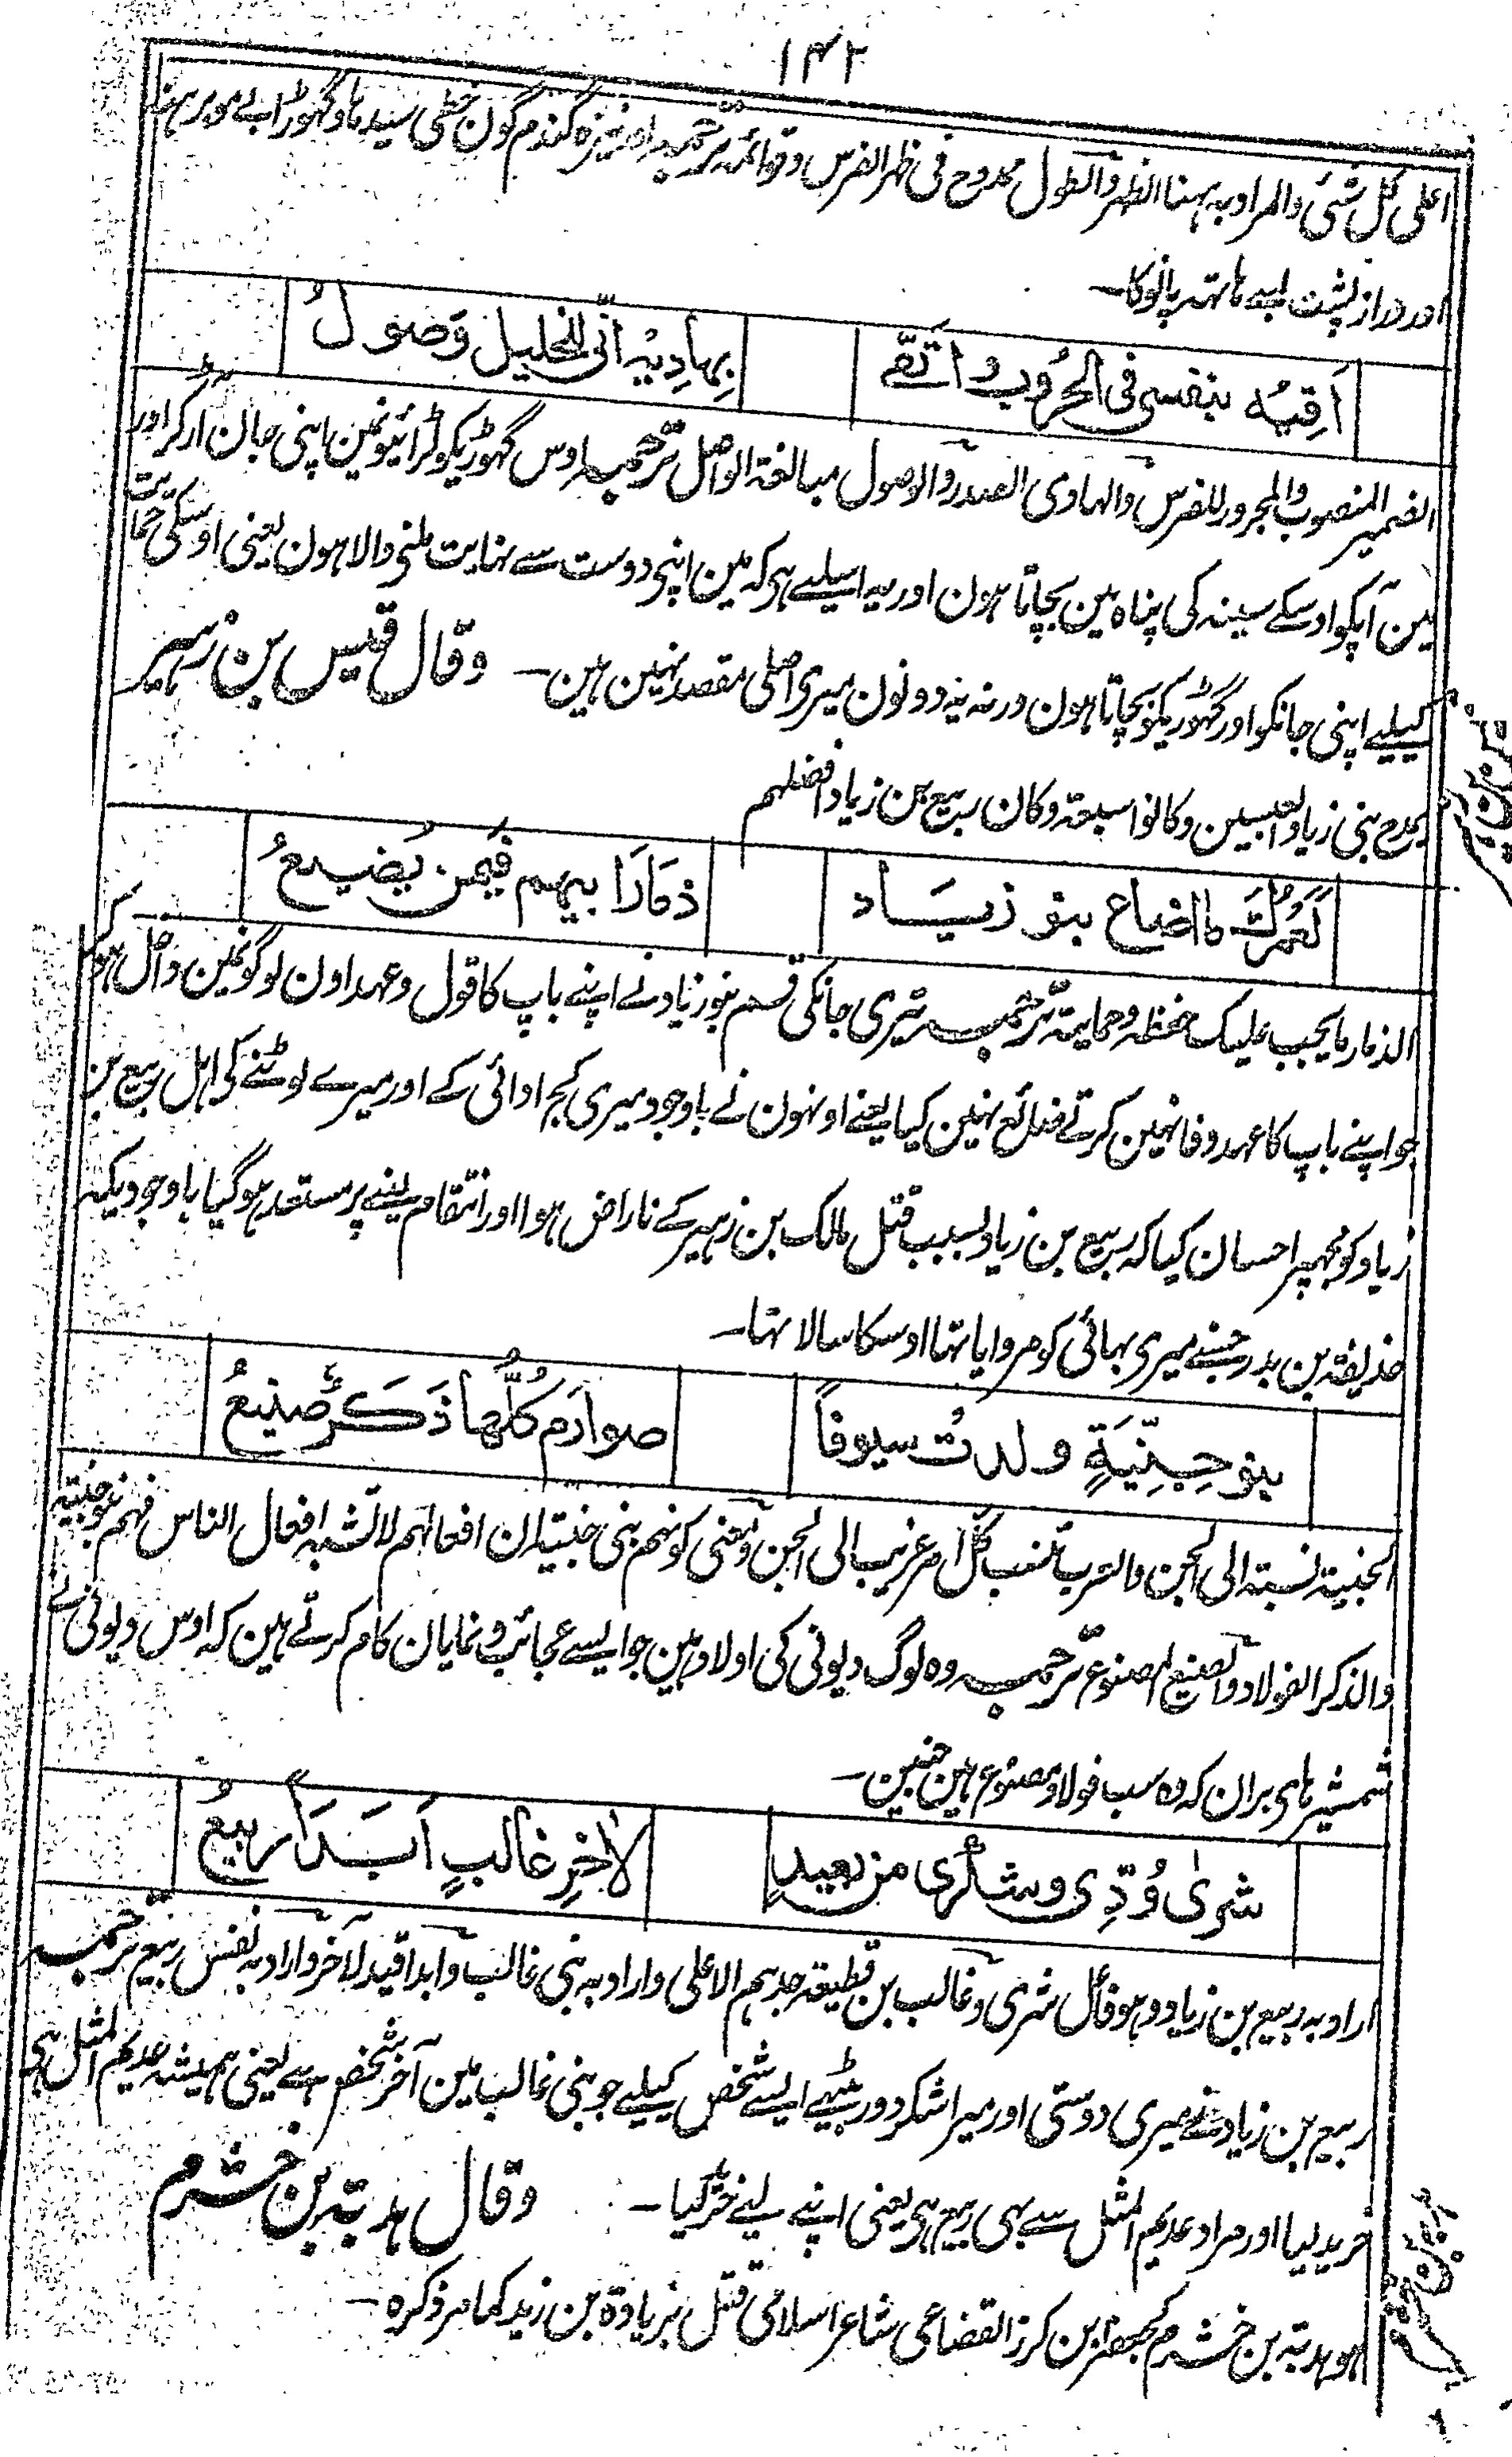 ۱۴۲
اعلی کل شئی والمراد بہ ہہنا الظہر والطول ممدوح فی ظہر الفرس وقوائمہ ترجمہ اور نیزہ گندم گون خطی سیدہا و گہوڑا بے مو برہنہ
اور دراز پشت لمبے ہاتہہ پانوکا۔
اَقِیْہ بنفسی فی الحُرُوبِ واَتَّقے
بِہادِیْہِ اِنّی للخلیل وَصُولُ
الضمیر المنصوب والمجرور للفرس والہادی الصدر والوصول مبالغۃ الواصل ترجمہ اوس گہوڑیکو لڑائیونمین اپنی جان اڑ کر اور
مین آپکو اوسکے سینہ کی پناہ مین بچاتا ہون اور یہ اسیلیے ہی کہ مین اپنی دوست سے نہایت ملنی والا ہون یعنی اوسکی حمایت
کیلیے اپنی جانکو اور گہوڑیکو بچاتا ہون ورنہ یہ دونون میری اصلی مقصد نہین ہین۔ وقال قیس بن زہیر
یمدح بنی زیاد العبسیین وکانوا سبعۃ وکان ربیع بن زیاد افضلہم
لَعَمْرُکَ ما اضاع بنو زیَاد
ذمَارَا بیہم فیمن یُضیعُ
الذمار ما یجب علیک حفظہ وحمایتہ ترجمہ تیری جانکی قسم بنو زیاد نے اپنے باپ کا قول وعہد اون لوگونمین داخل ہو کر
جو اپنے باپ کا عہد وفا نہین کرتے ضائع نہین کیا یعنے اونہون نے باوجود میری کج ادائی کے اور میرے لوٹنے کی اہل ربیع بن
زیاد کو مجہپر احسان کیا کہ ربیع بن زیاد بسبب قتل مالک بن زہیر کے ناراض ہوا اور انتقام لینے پر مستعد ہو گیا باوجودیکہ
حذیفۃ بن بدر جسنے میری بہائی کو مروایا تہا اوسکا سالا تہا۔
بنو جِنّیَةٍ ولدت سیوفاً
صوارم کُلُّھا ذَکَرٌ صنیعُ
الجنیۃ نسبۃ الی الجن والعرب تنسب کل امر غریب الی الجن ومعنی کونہم بنی جنیۃ ان افعالہم لا تشبہ افعال الناس فہم بنو جنیۃ
والذکر الفولاد والصنیع المصنوع ترجمہ وہ لوگ دیونی کی اولاد ہین جو ایسے عجائب ونمایان کام کرتے ہین کہ اوس دیونی نے
شمشیر ہای بران کہ وہ سب فولاد مصنوع ہین جنین۔
شری وُدّی وشکری من بعیدٍ
لاٰخرِ غالبٍ اَبَدًا ربیعُ
اراد بہ ربیع بن زیاد وہو فاعل شری وغالب بن قطیعۃ جدہم الاعلی واراد بہ بنی غالب وابدا قید لآخر واراد بہ نفس ربیع ترجمہ
ربیع بن زیاد نے میری دوستی اور میرا شکر دور بیٹہے ایسے شخص کیلیے جو بنی غالب مین آخر شخص ہے یعنی ہمیشہ عدیم المثل ہی
خرید لیا اور مراد عدیم المثل سے بہی ربیع ہی یعنی اپنے لیے خرید کیا۔ وقال ہدبۃ بن خشرم
ہو ہدبۃ بن خشرم کجعفر ابن کرز القضاعی شاعر اسلامی قتل بزیادۃ بن زید کما مر ذکرہ۔